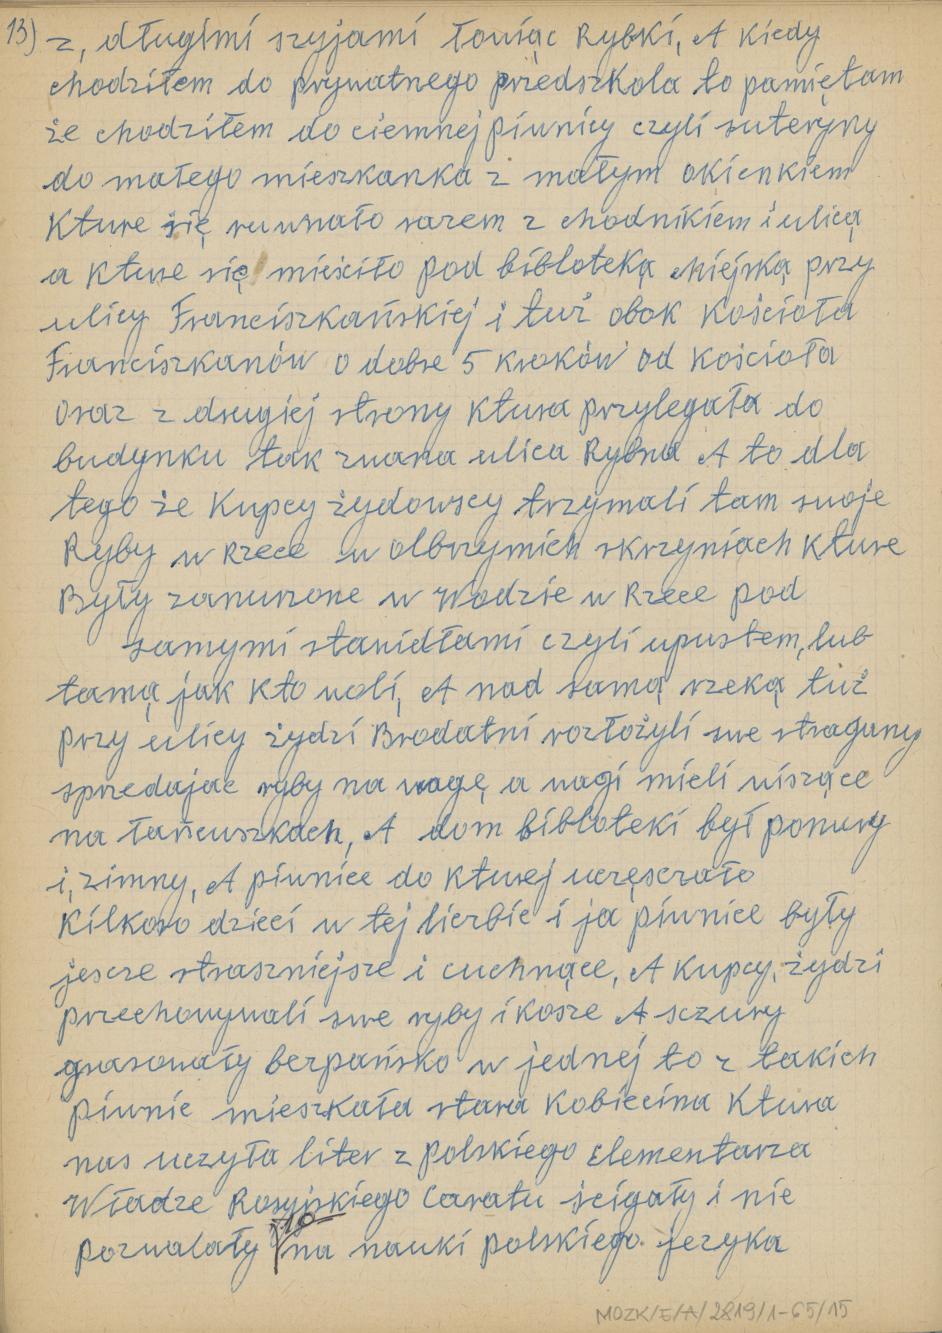 13) z, długimi szyjami łowiąc Rybki, A kiedy
chodziłem do prywatnego przedszkola to pamiętam
że chodziłem do ciemnej piwnicy czyli suteryny
do małego mieszkanka z małym okienkiem
Kture się ruwnało razem z chodnikiem i ulicą
a kture się mieściło pod bibloteką Miejską przy
ulicy Franciszkańskiej i tuż obok Kościoła
Franciszkanów o dobre 5 kroków od Kościoła
oraz z drugiej strony Ktura przylegała do
budynku tak zwana ulica Rybna A to dla
tego że Kupcy żydowscy trzymali tam swoje
Ryby w Rzece w olbrzymich skrzyniach Kture
Były zanurzone w Wodzie w Rzece pod
samymi stawidłami czyli upustem, lub
tamą jak Kto woli, A nad samą rzeką tuż
przy ulicy żydzi Brodatni rozłożyli swe stragany
spredajac ryby na wagę, a wagi mieli wiszące
na łańcuszkach, A dom bibloteki był ponury
i, zimny, A piwnice do Kturej uczęszczało
Kilkoro dzieci w tej liczbie i ja piwnice były
jescze straszniejsze i cuchnące, A Kupcy, żydzi
przechowywali swe ryby i kosze A sczury
grasowały bezpańsko w jednej to z takich
piwnic mieszkała stara Kobiecina Ktura
nas uczyła liter z polskiego Elementarza
Władze Rosyjskiego Caratu ścigały i nie
pozwalały na nauki polskiego języka
MOZK/E/A/2819/1-65/15